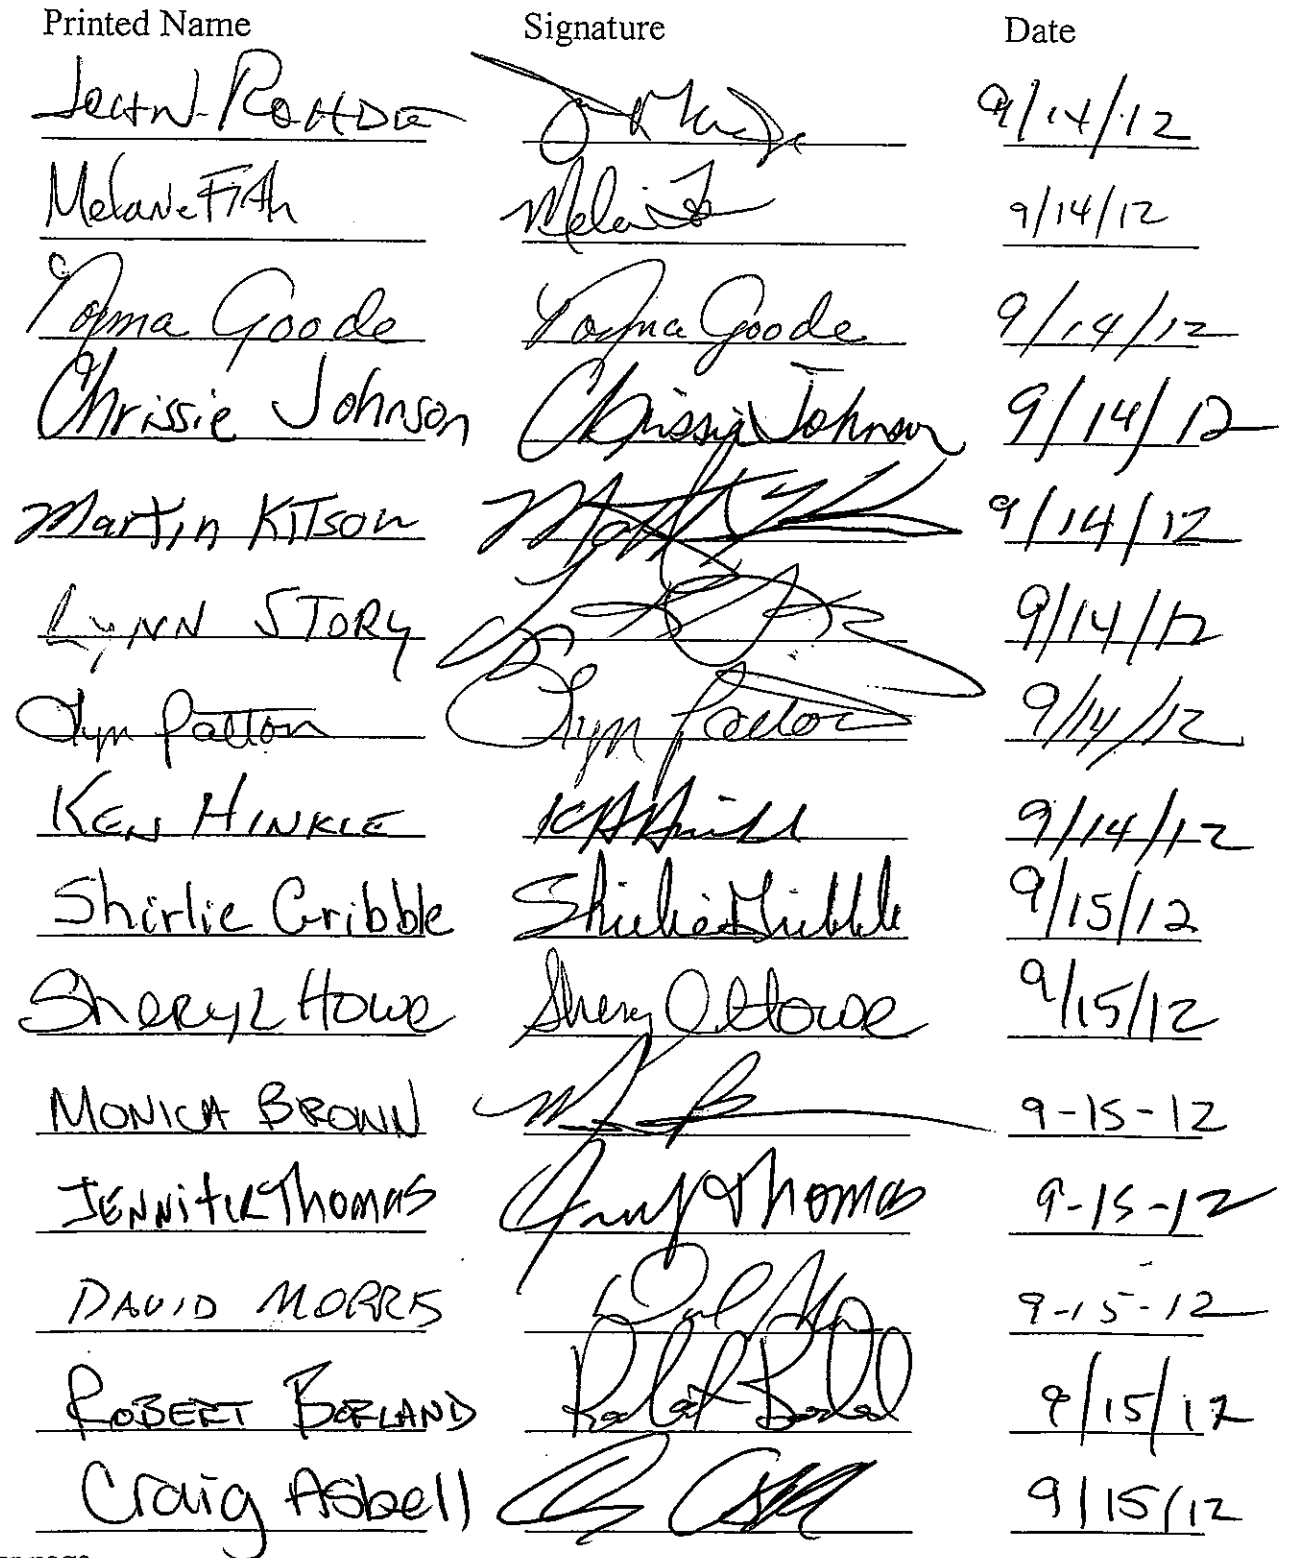 Printed Name Signature Date
John Rohde 9/14/12
Melanie Fith Melanie 9/14/12
Norma Goode Norma Goode 9/14/12
Chrissie Johnson Chrissie Johnson 9/14/12
Martin Kitson 9/14/12
Lynn Story 9/14/12
Lyn Patton Lyn Patton 9/14/12
Ken Hinkle 9/14/12
Shirlie Gribble Shirlie Gribble 9/15/12
Sheryl Howe Sheryl Howe 9/15/12
Monica Brown 9-15-12
Jennifer Thomas Thomas 9-15-12
David Morris 9-15-12
Robert Borland Robert Borland 9/15/12
Craig Asbell 9/15/12